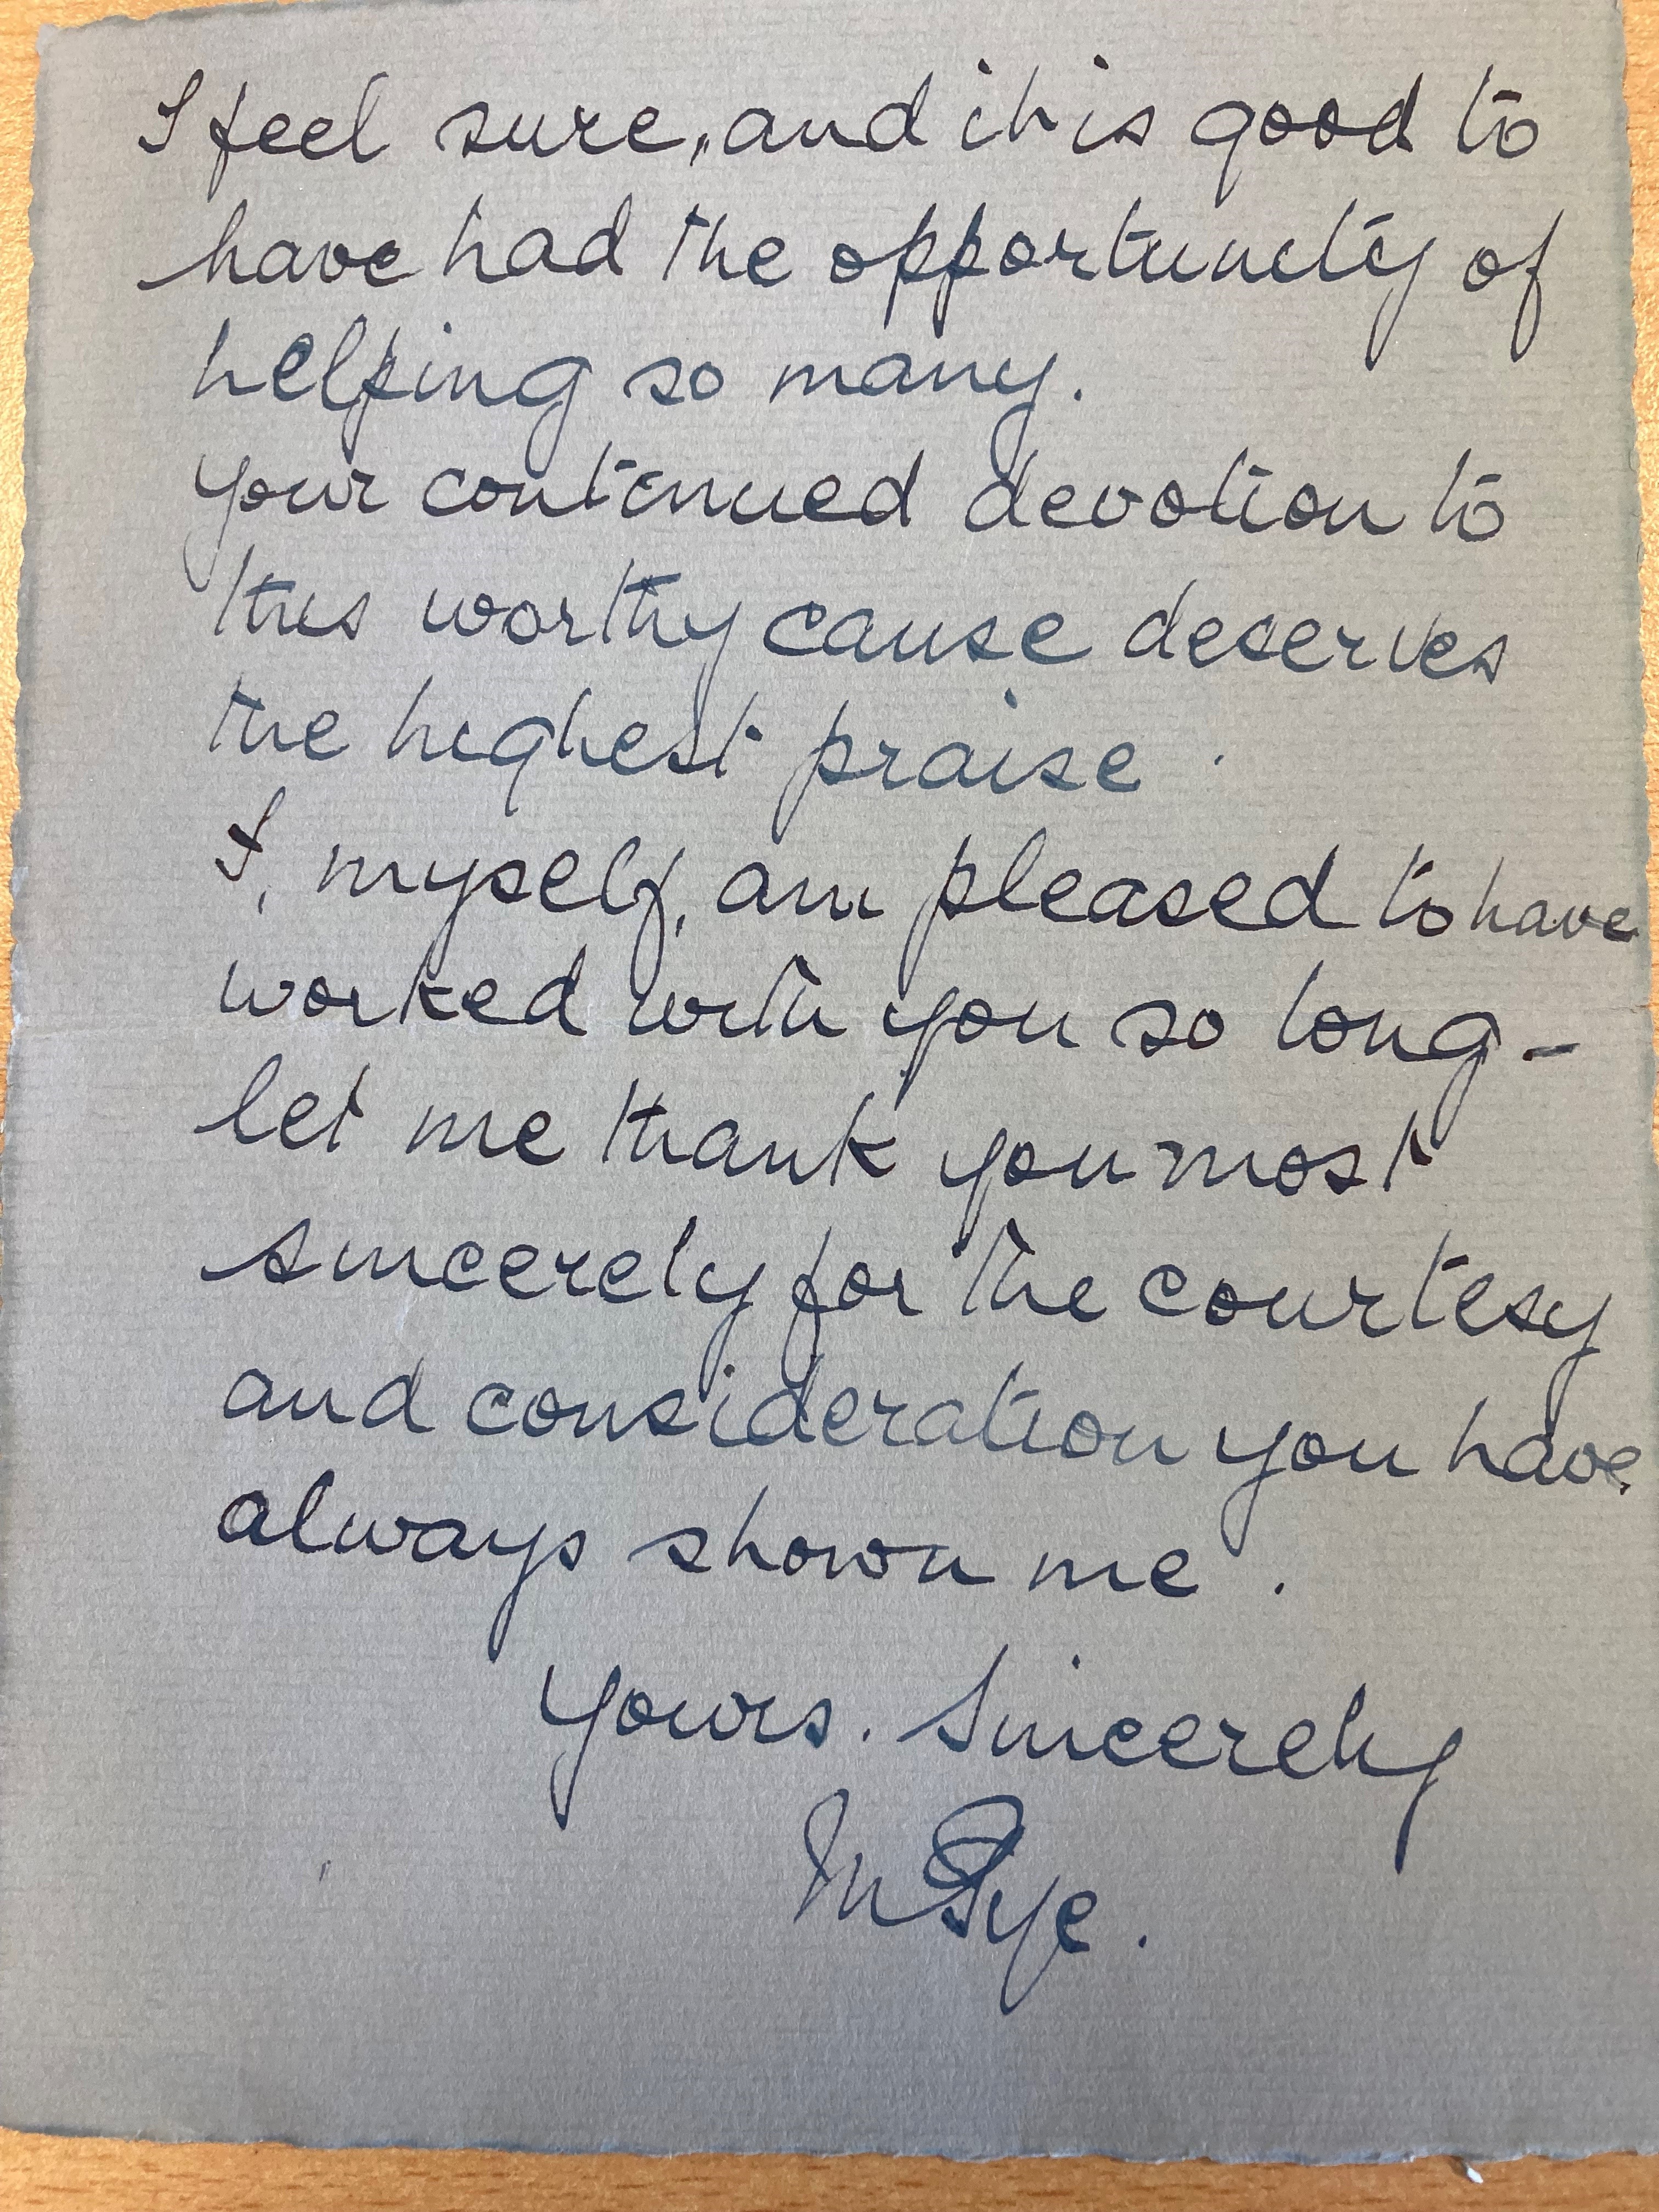 I feel sure, and it is good to
have had the opportunity of
helping so many.
Your continued devotion to
this worthy cause deserves
the highest praise.
I, myself, am pleased to have
worked with you so long –
let me thank you most
sincerely for the courtesy
and consideration you have
always shown me.
Yours. Sincerely